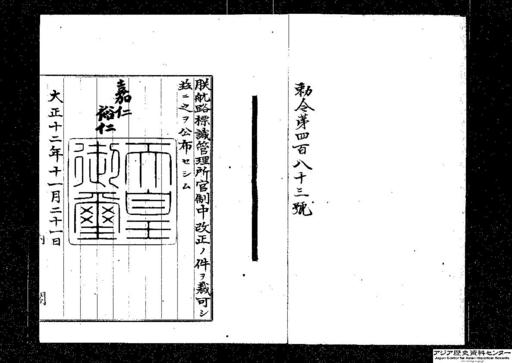 勅令第四百八十三號
朕航路標識管理所官制中改正ノ件ヲ裁可シ
玆ニ之ヲ公布セシム
嘉仁
裕仁
天皇御璽
大正十二年十一月二十一日
アジア歴史資料センター
Japan Center for Asian Historical Records